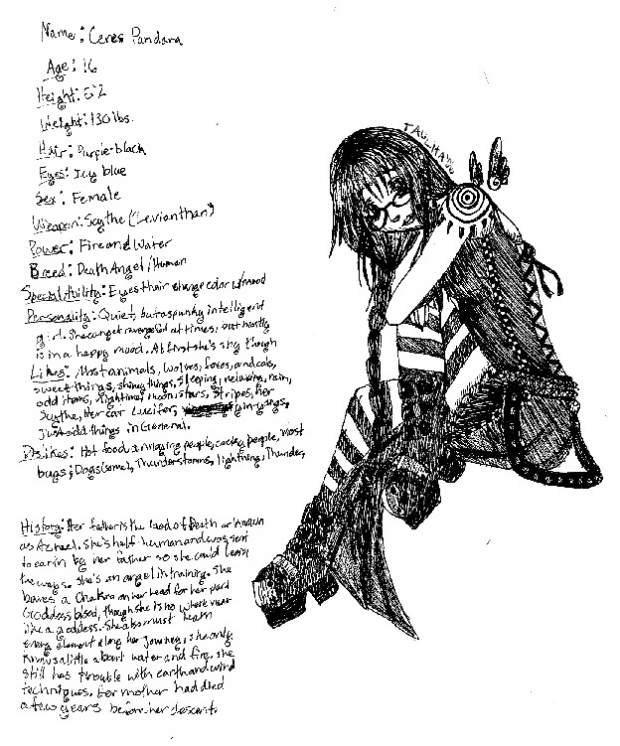 Name: Ceres Pandara
Age: 16
Height: 5'2
Weight: 130 lbs.
Hair: Purple-black
Eyes: Icy blue
Sex: Female
Weapon: Scythe (Levianthan)
Power: Fire and Water
Breed: Death Angel/Human
Special Ability: Eyes & hair change color w/mood
Personality: Quiet, but a spunky intelligent
girl. She can get revengeful at times, but mostly
is in a happy mood. At first she's shy though
Likes: Most animals, Wolves, foxes, and cats,
sweet things, shiny things, sleeping, relaxing, rain,
odd items, Nightime, moon, stars, Stripes, Her
Scythe, Her Cat Lucifer,
Just odd things in General.
Dislikes: Hot food, annoying people, cocky people, most
bugs, Dogs (some), Thunderstorms, lightning, Thunder,
History: Her father is the God of Death or known
as Azrael. She's half human and was sent
to earth by her father so she could learn
the ways. She's an angel in training. She
bares a Chakra on her head for her part
Goddess blood, though she is no where near
like a goddess. She also must learn
every element along her journey, she only
knows a little about water and fire. She
still has trouble with earth and wind
techniques. Her mother had died
a few years before her descent.